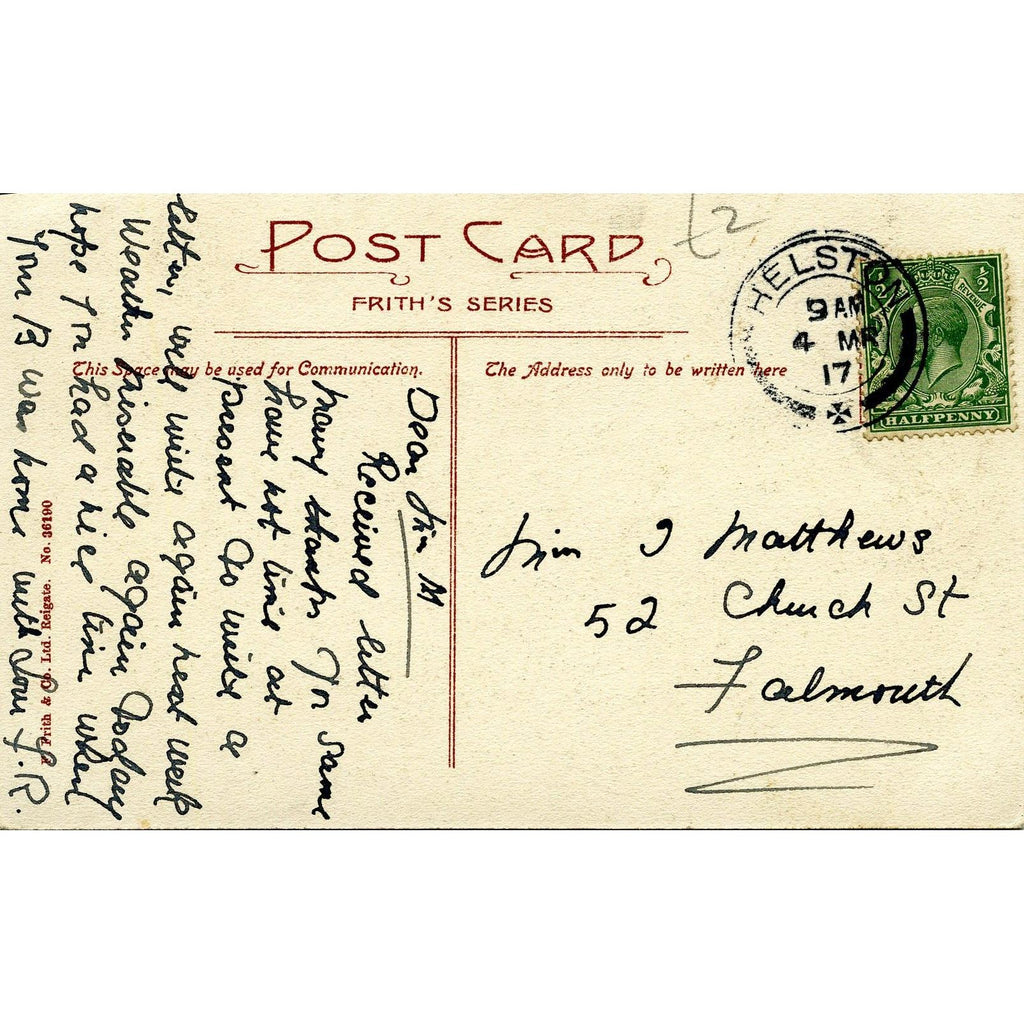 POST CARD
FRITH'S SERIES
£2
HELSTON
9 AM
4 MR
17
½ ½
REVENUE
HALFPENNY
This Space may be used for Communication.
The Address only to be written here
Dear Jim M
Received letter
many thanks for same
have not time at
present to write a
letter, will write again next week
Weather miserable again today
hope you had a nice time when
your B was home with love
J.R.
J Matthews
52 Church St
Falmouth
Frith & Co. Ltd. Reigate. No. 36190